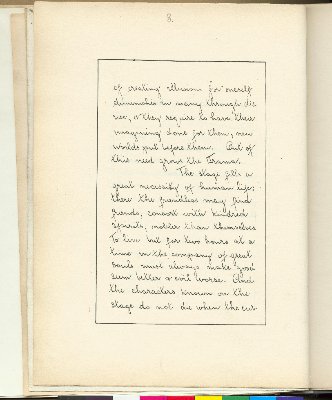 8.
of creating illusion for oneself
diminishes in many through dis
use, & they require to have their
imagining done for them, new
worlds put before them. Out of
this need grows the Drama.
The stage fills a
great necessity of human life;
there the friendless may find
friends, consort with kindred
spirits, nobler than themselves
To live but for two hours at a
time in the company of great
souls must always make good
seem better & evil worse. And
the characters known on the
stage do not die when the cur-